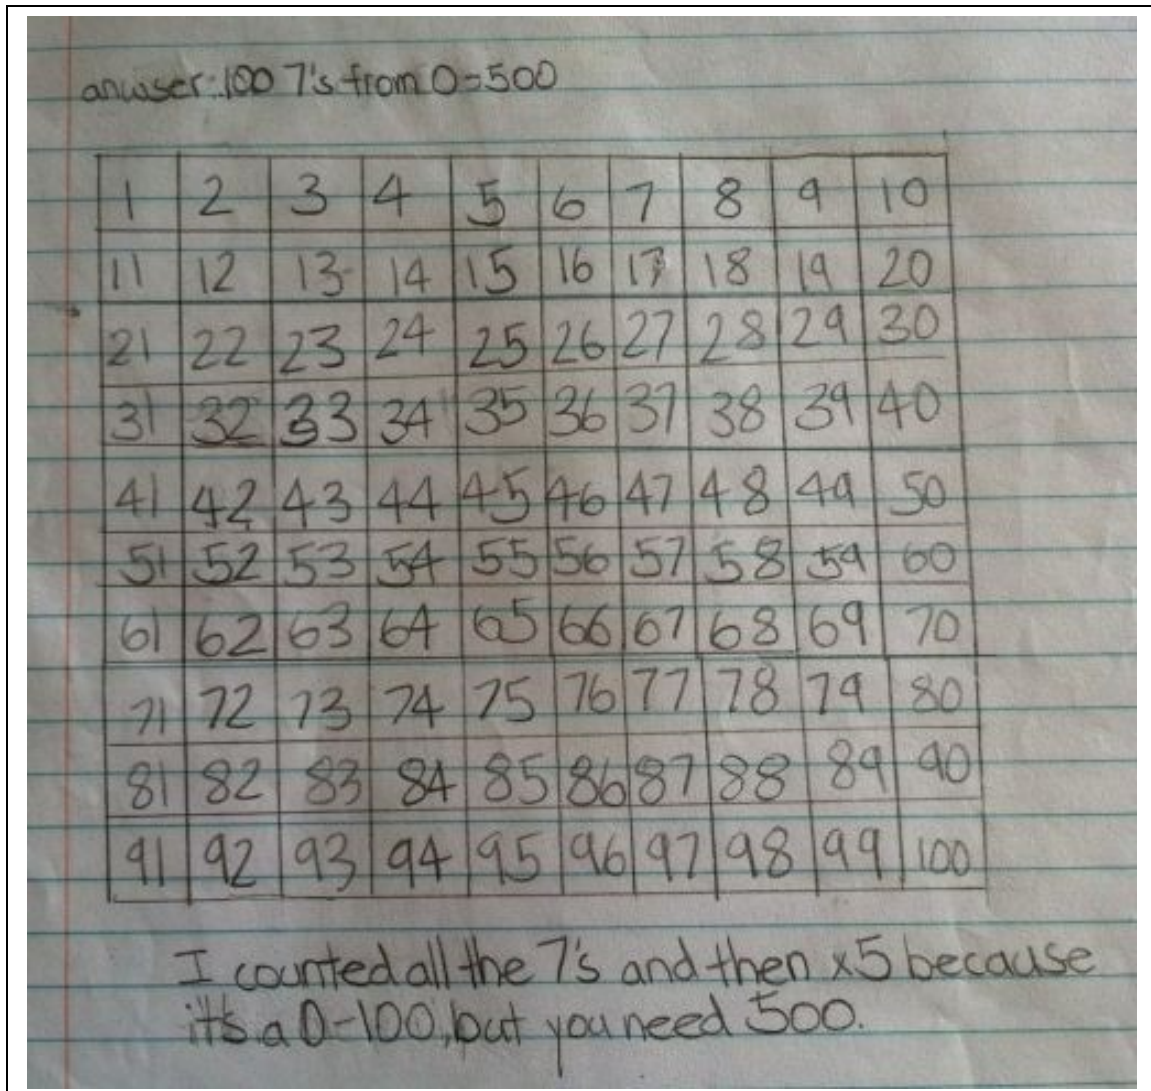 anwser: 100 7's from 0=500
1 2 3 4 5 6 7 8 9 10
11 12 13 14 15 16 17 18 19 20
21 22 23 24 25 26 27 28 29 30
31 32 33 34 35 36 37 38 39 40
41 42 43 44 45 46 47 48 49 50
51 52 53 54 55 56 57 58 59 60
61 62 63 64 65 66 67 68 69 70
71 72 73 74 75 76 77 78 79 80
81 82 83 84 85 86 87 88 89 90
91 92 93 94 95 96 97 98 99 100
I counted all the 7's and then x5 because
it's a 0-100, but you need 500.